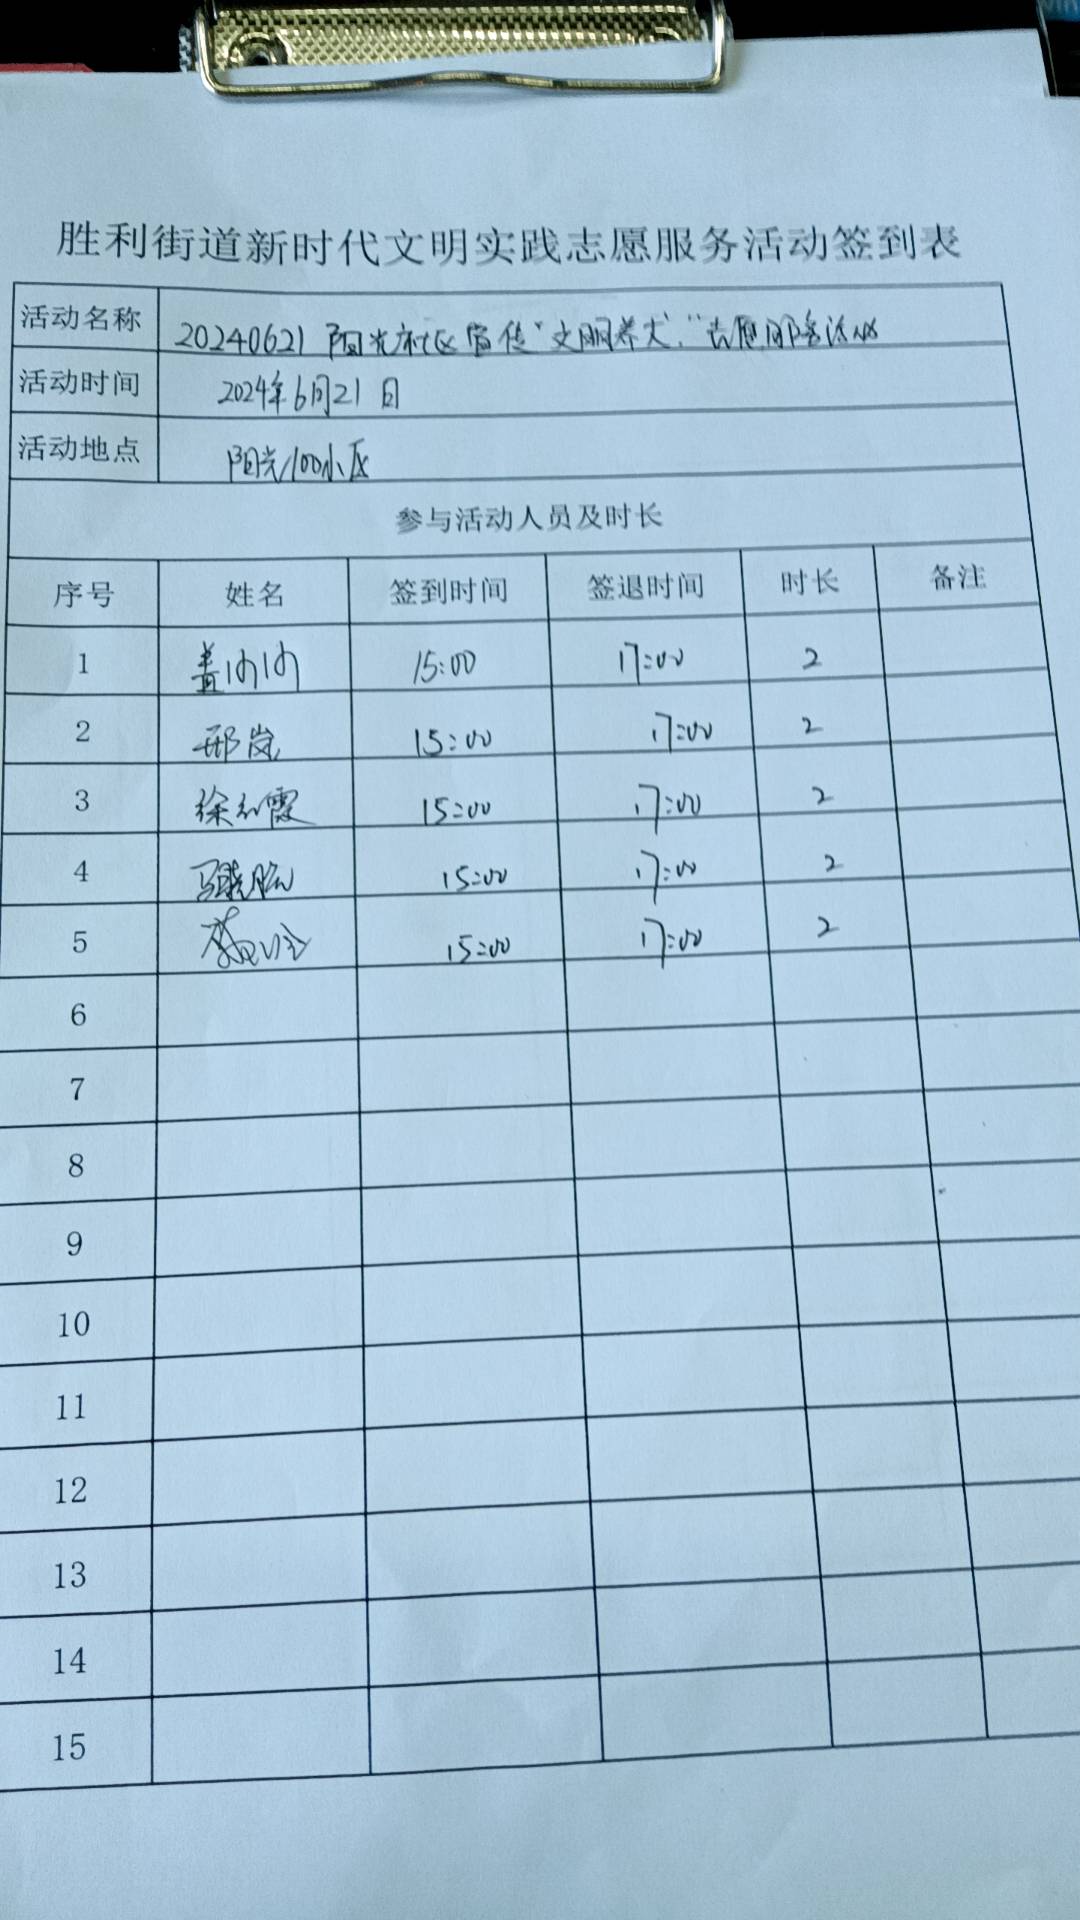 胜利街道新时代文明实践志愿服务活动签到表
活动名称 20240621 阳光社区宣传“文明养犬”志愿服务活动
活动时间 2024年6月21日
活动地点 阳光100小区
参与活动人员及时长
序号 姓名 签到时间 签退时间 时长 备注
1 盖内内 15:00 17:00 2
2 邢岚 15:00 17:00 2
3 徐红霞 15:00 17:00 2
4 15:00 17:00 2
5 15:00 17:00 2
6
7
8
9
10
11
12
13
14
15